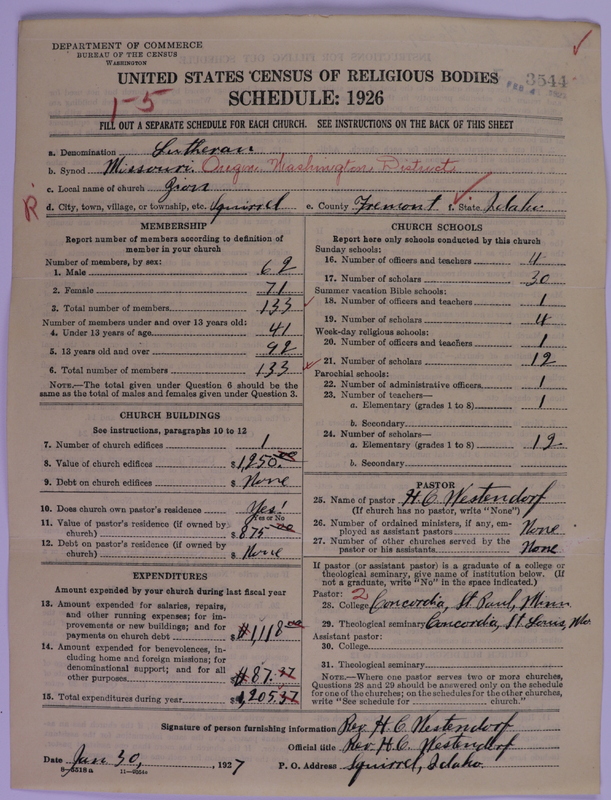 DEPARTMENT OF COMMERCE
BUREAU OF THE CENSUS
WASHINGTON
UNITED STATES CENSUS OF RELIGIOUS BODIES
3544
FEB 4
SCHEDULE: 1926
1-5
FILL OUT A SEPARATE SCHEDULE FOR EACH CHURCH. SEE INSTRUCTIONS ON THE BACK OF THIS SHEET
a. Denomination Lutheran
b. Synod Missouri. Oregon Washington District
c. Local name of church Zion
R
d. City, town, village, or township, etc. Squirrel e. County Fremont f. State Idaho
MEMBERSHIP
Report number of members according to definition of
member in your church
Number of members, by sex:
1. Male 62
2. Female 71
3. Total number of members 133
Number of members under and over 13 years old:
4. Under 13 years of age 41
5. 13 years old and over 92
6. Total number of members 133
NOTE.—The total given under Question 6 should be
same as the total of males and females given under Question 3.
CHURCH BUILDINGS
See instructions, paragraphs 10 to 12
7. Number of church edifices 1
8. Value of church edifices $1250.00
9. Debt on church edifices $ None
10. Does church own pastor's residence Yes!
Yes or No
11. Value of pastor's residence (if owned by
church) $875 00
12. Debt on pastor's residence (if owned by
church) $ None
EXPENDITURES
Amount expended by your church during last fiscal year
13. Amount expended for salaries, repairs,
and other running expenses; for im-
provements or new buildings; and for
payments on church debt $1,118 00
14. Amount expended for benevolences, in-
cluding home and foreign missions; for
denominational support; and for all
other purposes $87.37
15. Total expenditures during year $1,205.37
CHURCH SCHOOLS
Report here only schools conducted by this church
Sunday schools:
16. Number of officers and teachers 4
17. Number of scholars 30
Summer vacation Bible schools:
18. Number of officers and teachers 1
19. Number of scholars 4
Week-day religious schools:
20. Number of officers and teachers 1
21. Number of scholars 12
Parochial schools:
22. Number of administrative officers 1
23. Number of teachers—
a. Elementary (grades 1 to 8) 1
b. Secondary
24. Number of scholars—
a. Elementary (grades 1 to 8) 12
b. Secondary
PASTOR
25. Name of pastor H. C. Westendorf
(If church has no pastor, write "None")
26. Number of ordained ministers, if any, em-
ployed as assistant pastors None
27. Number of other churches served by the
pastor or his assistants None
If pastor (or assistant pastor) is a graduate of a college or
theological seminary, give name of institution below. (If
not a graduate, write "No" in the space indicated.)
Pastor: 2
28. College Concordia, St. Paul, Minn
29. Theological seminary Concordia, St. Louis, Mo.
Assistant pastor:
30. College
31. Theological seminary
NOTE.—Where one pastor serves two or more churches,
Questions 28 and 29 should be answered only on the schedule
for one of the churches; on the schedules for the other churches,
write "See schedule for church."
Signature of person furnishing information Rev. H. C. Westendorf
Official title Rev. H. C. Westendorf
Date Jan 30, 1927 P. O. Address Squirrel, Idaho.
8-5518a 11-9554